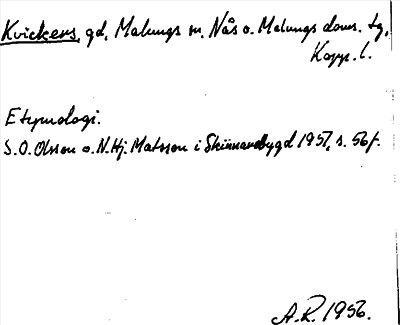 Kvickers, gd, Malungs sn. Nås o. Malungs doms. tg,
Kopp. l.
Etymologi.
S.O. Olsson o. N.Hj. Matsson i Skinnarebygd 1957, s. 56f.
A.R. 1956.